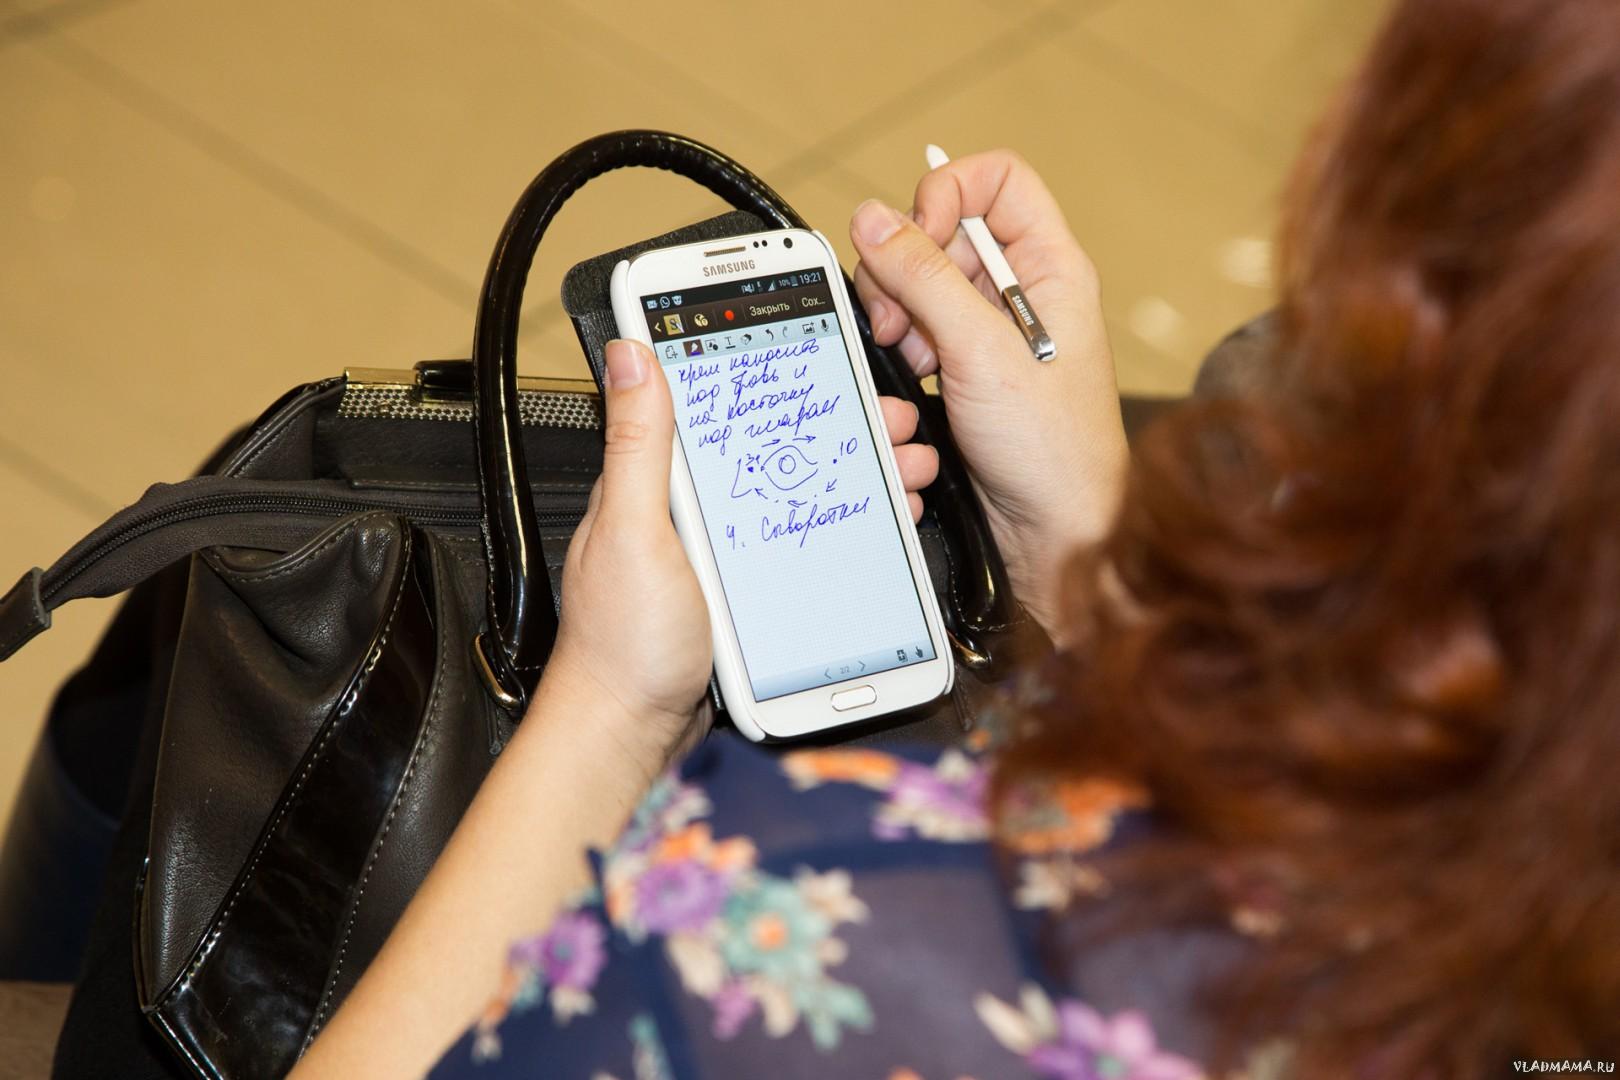 SAMSUNG
10% 19:21
Закрыть Сох...
T
крем наносить
под бровь и
на косточку
под глазом
.10
4. Сыворотки
2/2
SAMSUNG
VLADMAMA.RU